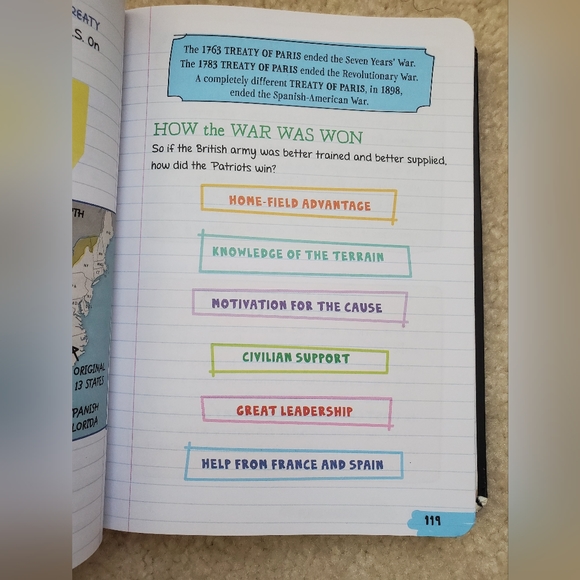 S. On
TH
ORIGINAL
13 STATES
The 1763 TREATY OF PARIS ended the Seven Years' War.
The 1783 TREATY OF PARIS ended the Revolutionary War.
A completely different TREATY OF PARIS, in 1898,
ended the Spanish-American War.
HOW the WAR WAS WON
So if the British army was better trained and better supplied,
how did the Patriots win?
HOME-FIELD ADVANTAGE
KNOWLEDGE OF THE TERRAIN
MOTIVATION FOR THE CAUSE
CIVILIAN SUPPORT
GREAT LEADERSHIP
HELP FROM FRANCE AND SPAIN
119